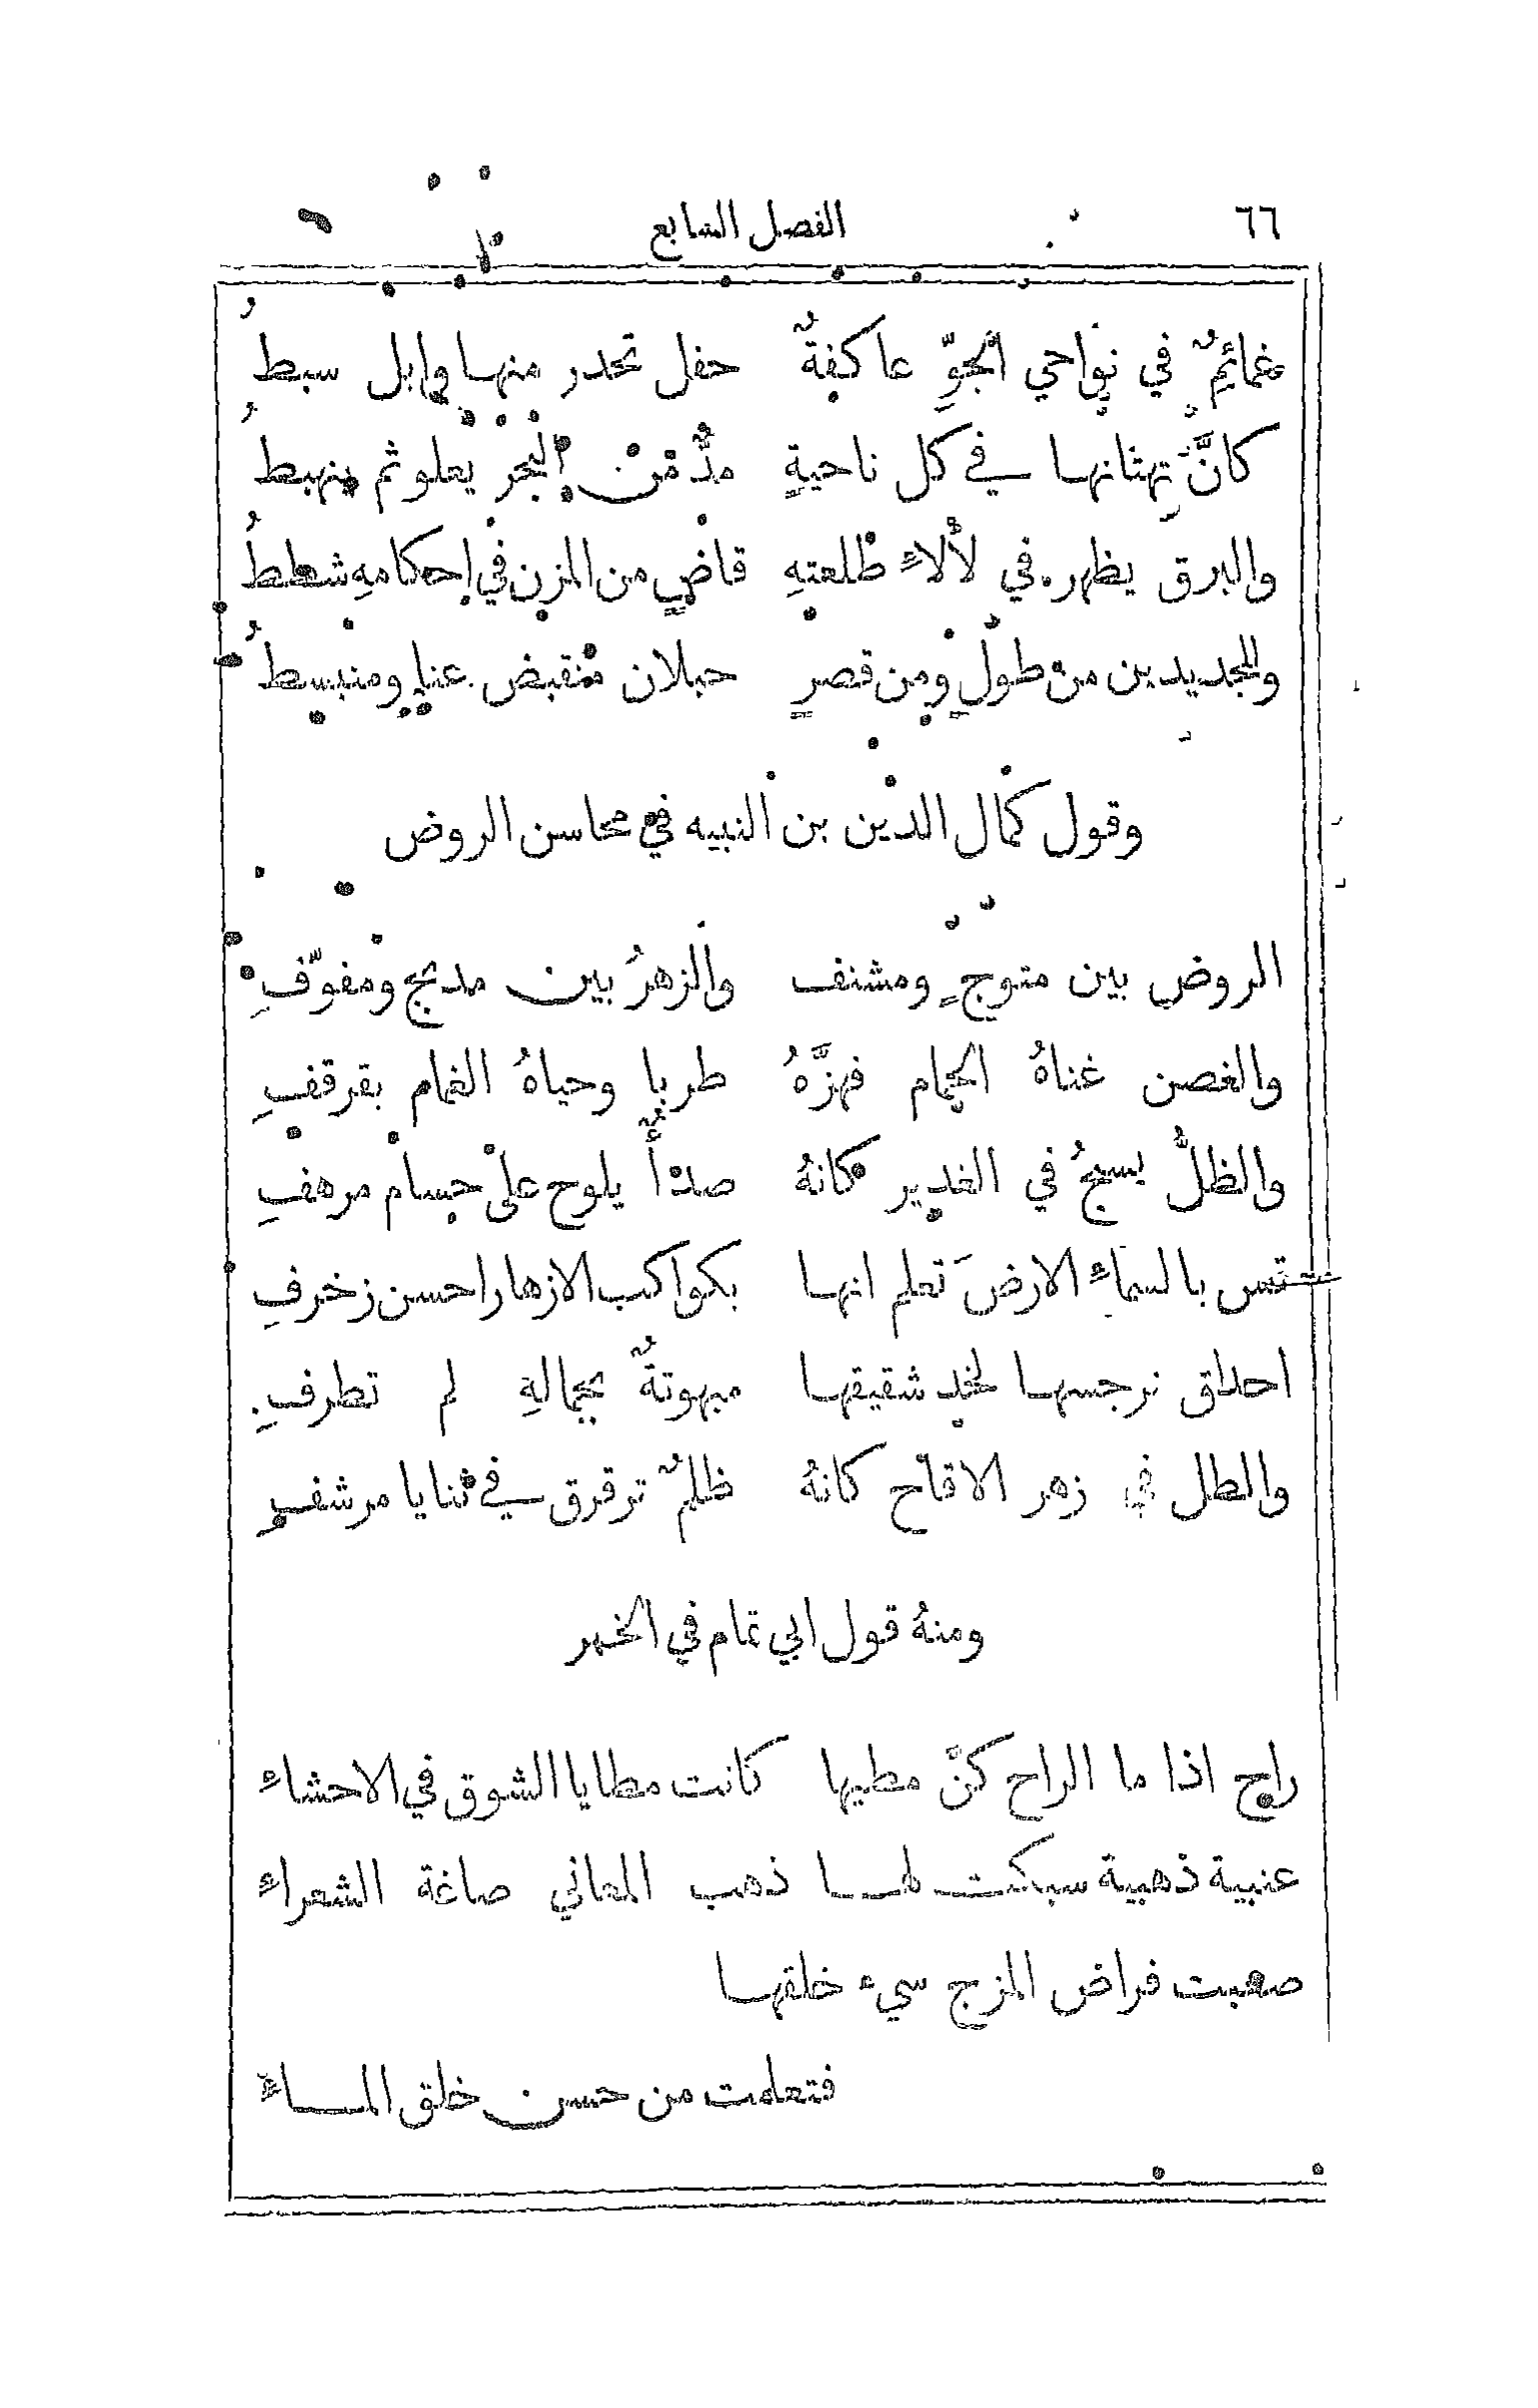 ٦٦ الفصل السابع
غمائمٌ في نواحي الجوّ عاكفةٌ حفل تحدر منها وابل سبطُ
كانَّ تهتانها في كل ناحيةٍ مدٌّ من البحر يعلو ثم ينهبطُ
والبرق يظهر في لألاءِ طلعتهِ قاضٍ من المزن في احكامهِ شططُ
وللجديدين من طولٍ ومن قصرٍ حبلان منقبض عنا ومنبسطُ
وقول كمال الدين بن النبيه في محاسن الروض
الروض بين متوجٍ ومشنف والزهرُ بين مدبج ومفوّفِ
والغصن غناهُ الحمام فهزَّهُ طربا وحياهُ الغمام بقرقفِ
والظلُّ يسبحُ في الغدير كانهُ صدأٌ يلوح على حسام مرهفِ
تس بالسماءِ الارضَ تعلم انها بكواكب الازهار احسن زخرفِ
احداق نرجسها لخد شقيقها مبهوتةٌ بجمالهِ لم تطرفِ
والطل في زهر الاقاح كانهُ ظلمٌ ترقرق في ثنايا مرشفِ
ومنهُ قول ابي تمام في الخمر
راح اذا ما الراح كنّ مطيها كانت مطايا الشوق في الاحشاءِ
عنبية ذهبية سبكت لها ذهب المعاني صاغة الشعراءِ
صعبت فراض المزج سيء خلقها
فتعلمت من حسن خلق الماءِ